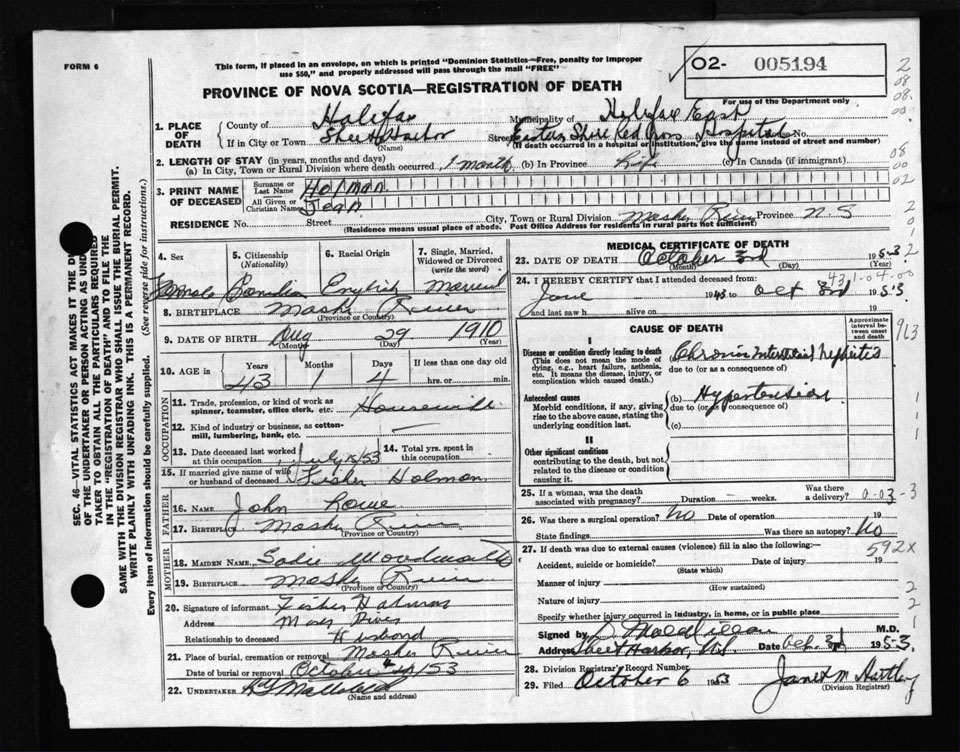 FORM 6
This form, if placed in an envelope, on which is printed "Dominion Statistics—Free, penalty for improper
use $50," and properly addressed will pass through the mail "FREE"
02- 005194
For use of the Department only
PROVINCE OF NOVA SCOTIA—REGISTRATION OF DEATH
1. PLACE OF DEATH
County of Halifax Halifax East
If in City or Town Sheet Harbor Street Eastern Shore Red Cross Hospital No.
(Name) (If death occurred in a hospital or institution, give the name instead of street and number)
2. LENGTH OF STAY (in years, months and days)
(a) In City, Town or Rural Division where death occurred 1 month (b) In Province Life (c) In Canada (if immigrant)
3. PRINT NAME OF DECEASED
Surname or Last Name Holman
All Given or Christian Names Jean
RESIDENCE No. Street City, Town or Rural Division Mosher River Province N.S
(Residence means usual place of abode. Post Office Address for residents in rural parts not sufficient)
4. Sex Female
5. Citizenship (Nationality) Canadian
6. Racial Origin English
7. Single, Married, Widowed or Divorced (write the word) Married
8. BIRTHPLACE Mosher River
(Province or Country)
9. DATE OF BIRTH Aug 29 1910
(Month) (Day) (Year)
10. AGE in Years Months Days If less than one day old
43 1 4 hrs. or min.
11. Trade, profession, or kind of work as spinner, teamster, office clerk, etc. Housewife
12. Kind of industry or business, as cotton-mill, lumbering, bank, etc. —
13. Date deceased last worked at this occupation July 15/53
14. Total yrs. spent in this occupation
15. If married give name of wife or husband of deceased Fisher Holman
16. NAME John Lowe
17. BIRTHPLACE Mosher River
(Province or Country)
18. MAIDEN NAME Sadie
19. BIRTHPLACE Mosher River
(Province or Country)
20. Signature of informant Fisher Holman
Address River
Relationship to deceased Husband
21. Place of burial, cremation or removal Mosher River
Date of burial or removal October /53
22. UNDERTAKER
(Name and address)
OCCUPATION
FATHER
MOTHER
MEDICAL CERTIFICATE OF DEATH
23. DATE OF DEATH October 3rd 1953
(Month) (Day) (Year)
431-04-00
24. I HEREBY CERTIFY that I attended deceased from:
June 1948 to Oct 3rd 1953
and last saw h alive on 19
CAUSE OF DEATH
Approximate interval between onset and death
I
Disease or condition directly leading to death
(This does not mean the mode of dying, e.g., heart failure, asthenia, etc. It means the disease, injury, or complication which caused death.)
(a) Chronic Interstitial Nephritis
due to (or as a consequence of)
Antecedent causes
Morbid conditions, if any, giving rise to the above cause, stating the underlying condition last.
(b) Hypertension
due to (or as a consequence of)
(c)
II
Other significant conditions
contributing to the death, but not related to the disease or condition causing it.
25. If a woman, was the death associated with pregnancy? Duration weeks. Was there a delivery? 0-03-3
26. Was there a surgical operation? No Date of operation 19
State findings Was there an autopsy? No
592x
27. If death was due to external causes (violence) fill in also the following:—
Accident, suicide or homicide? Date of injury 19
(State which)
Manner of injury
(How sustained)
Nature of injury
Specify whether injury occurred in industry, in home, or in public place
Signed by M.D.
Address Sheet Harbor, N.S. Date Oct. 3rd 1953.
28. Division Registrar's Record Number
29. Filed October 6 1953 Janet M Hartling
(Division Registrar)
SEC. 46—VITAL STATISTICS ACT MAKES IT THE
OF THE UNDERTAKER OR PERSON ACTING AS UNDER
TAKER TO OBTAIN ALL THE PARTICULARS REQUIRED
IN THE "REGISTRATION OF DEATH" AND TO FILE THE
SAME WITH THE DIVISION REGISTRAR WHO SHALL ISSUE THE BURIAL PERMIT.
WRITE PLAINLY WITH UNFADING INK. THIS IS A PERMANENT RECORD.
Every item of information should be carefully supplied. (See reverse side for instructions.)